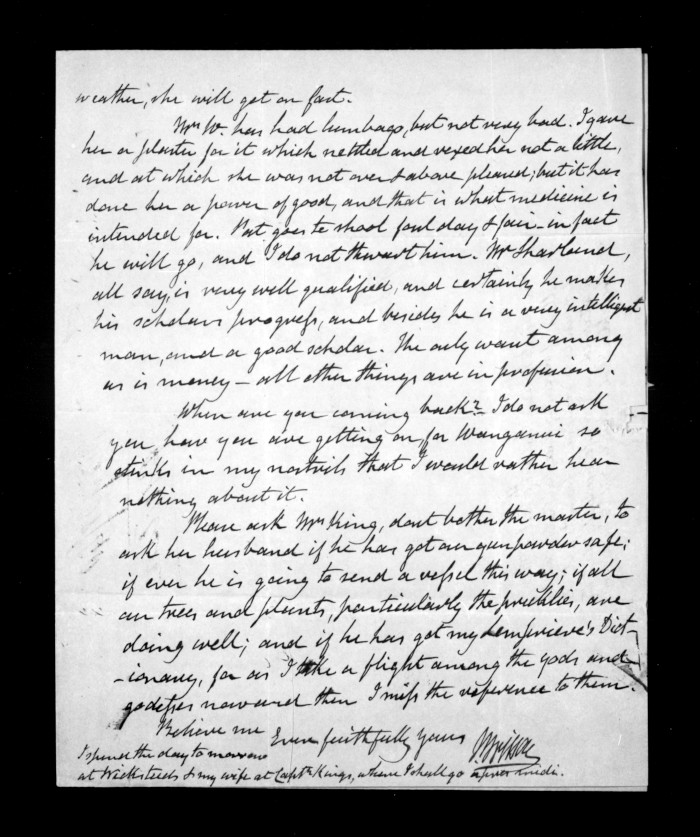 weather, she will get on fast.
Mrs W. has had lumbago, but not very bad. I gave
her a plaster for it which nettled and vexed her not a little,
and at which she was not over & above pleased; but it has
done her a power of good, and that is what medicine is
intended for. Pat goes to shool foul day & fair - in fact
he will go, and I do not thwart him. Mr Sharland,
all say, is very well qualified, and certainly he makes
his scholars progress, and besides he is a very intelligent
man, and a good scholar. The only want among
us is money - all other things are in profusion.
When are you coming back? I do not ask
you how you are getting on, for Wanganui so
stinks in my nostrils that I would rather hear
nothing about it.
Please ask Mrs King, dont bother the master, to
ask her husband if he has got our gunpowder safe;
if ever he is going to send a vessel this way; if all
our trees and plants, particularly the , are
doing well; and if he has got my Lempriere's Dict-
-ionary, for as I take a flight among the gods and
godesses now and then I miss the reference to them.
Believe me Ever faithfully yours
I spend the day tomorrow
at Wicksteeds & my wife at Captn Kings, where I shall go apres midi.